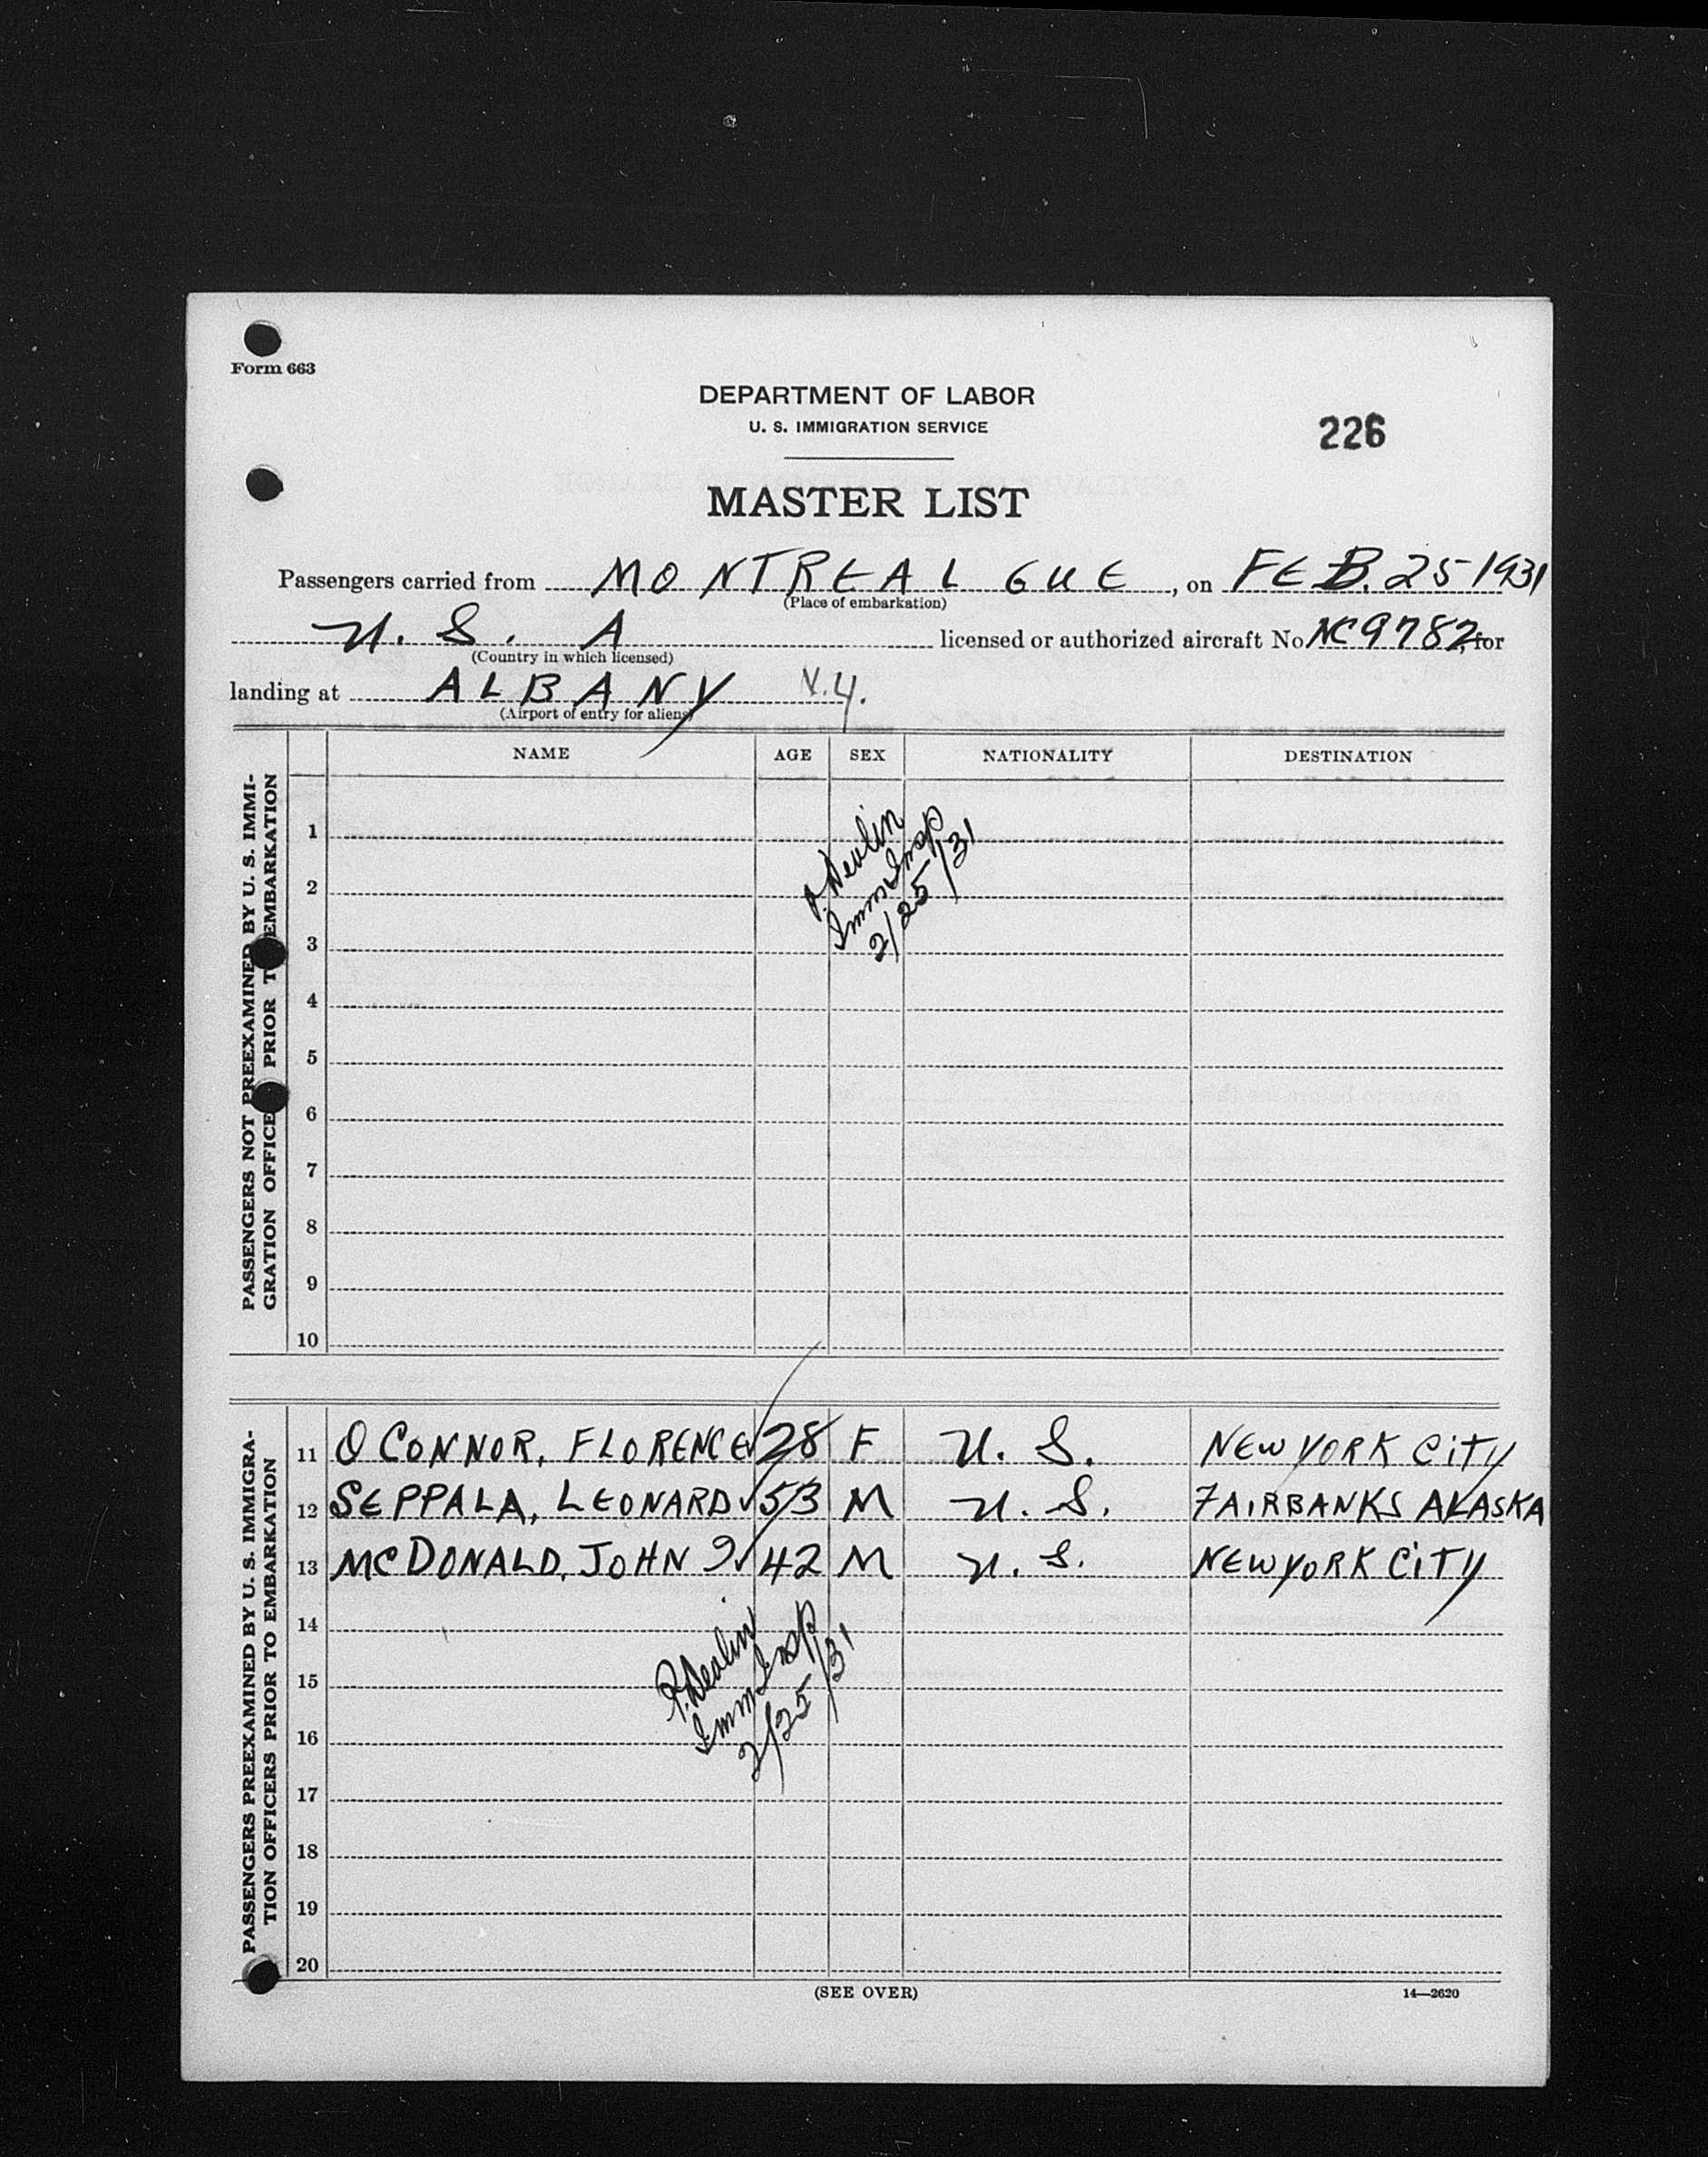 Form 663
DEPARTMENT OF LABOR
U. S. IMMIGRATION SERVICE
226
MASTER LIST
Passengers carried from MONTREAL QUE, on FEB. 25 1931
(Place of embarkation)
U. S. A licensed or authorized aircraft No. NC9782, for
(Country in which licensed)
landing at ALBANY N.Y.
(Airport of entry for aliens)
NAME AGE SEX NATIONALITY DESTINATION
PASSENGERS NOT PREEXAMINED BY U. S. IMMI-
GRATION OFFICE PRIOR T EMBARKATION
1
2
3
4
5
6
7
8
9
10
P. Devlin
Imm Insp
2/25/31
PASSENGERS PREEXAMINED BY U. S. IMMIGRA-
TION OFFICERS PRIOR TO EMBARKATION
11 O CONNOR, FLORENCE ✓ 28 F U. S. NEW YORK CITY
12 SEPPALA, LEONARD ✓ 53 M U. S. FAIRBANKS ALASKA
13 MCDONALD, JOHN J ✓ 42 M U. S. NEW YORK CITY
14
15
16
17
18
19
20
P. Devlin
Imm Insp
2/25/31
(SEE OVER)
14—2620